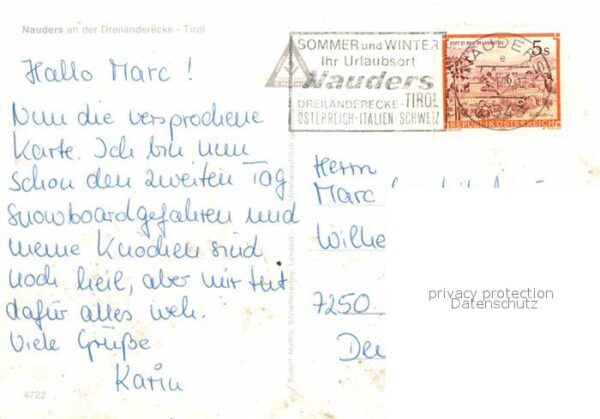 Nauders an der Dreiländerecke - Tirol
Hallo Marc!
Nun die versprochene
Karte. Ich bin nun
schon den zweiten Tag
Snowboardgefahren und
meine Knochen sind
noch heil, aber mir tut
dafür alles weh.
Viele Grüße
Karin
4722
SOMMER und WINTER
Ihr Urlaubsort
Nauders
TIROL
DREILÄNDERECKE -
ÖSTERREICH-ITALIEN-SCHWEIZ
STIFT ST. PAUL IM LAVANTTAL
5 S
REPUBLIK ÖSTERREICH
NAUDERS
6543
Rudolf Mathis, Silvretta Verlag, Landeck - Tirol
Herrn
Marc
Wilhe
7250
Deu
privacy protection
Datenschutz